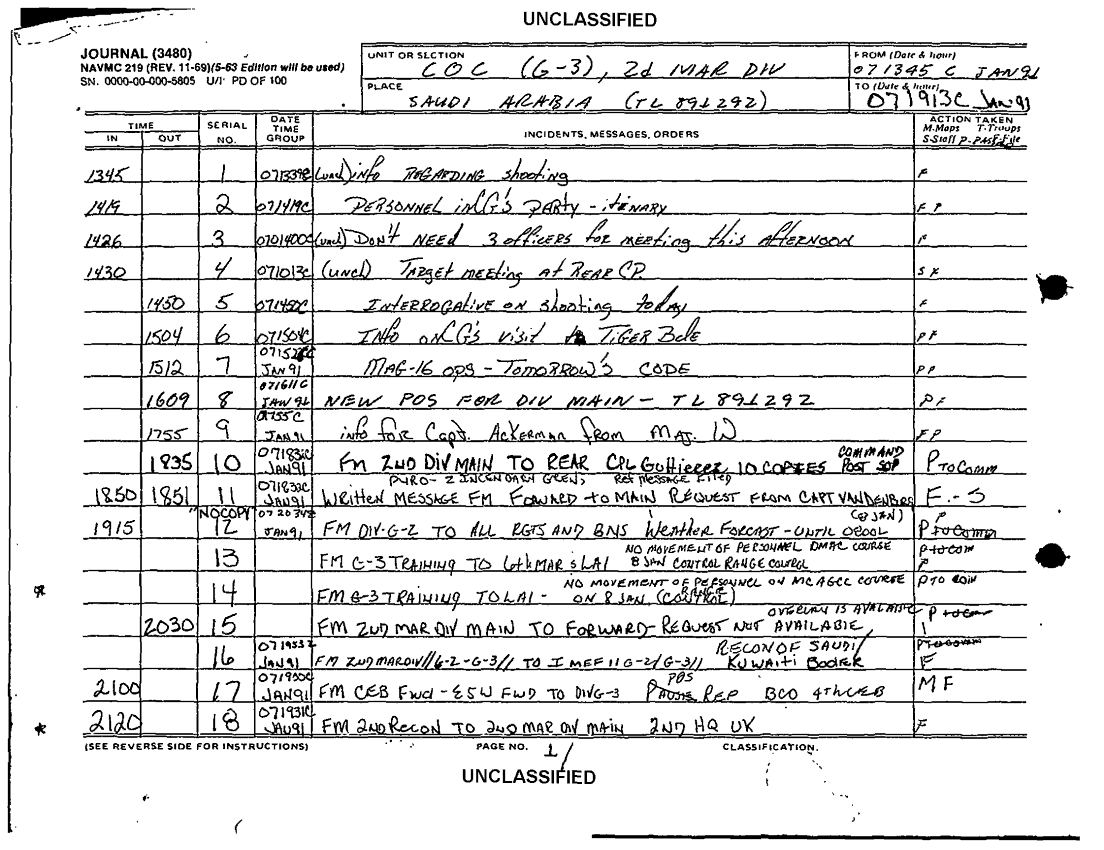 UNCLASSIFIED
JOURNAL (3480)
NAVMC 219 (REV. 11-69)(5-63 Edition will be used)
SN. 0000-00-000-5805 U/I PD OF 100
UNIT OR SECTION
COC (G-3), 2d MAR DIV
FROM (Date & hour)
071345 C JAN91
PLACE
SAUDI ARABIA (TL 891292)
TO (Date & hour)
071913C JAN91
TIME
IN OUT
SERIAL NO.
DATE TIME GROUP
INCIDENTS, MESSAGES, ORDERS
ACTION TAKEN
M-Maps T-Troops
S-Staff P- F-File
1345 1 071339C (Uncl) info REGARDING shooting F
1419 2 071419C PERSONNEL in CG'S PARTY - itenary F P
1426 3 0701400C (uncl) DON'T NEED 3 officers for meeting this AFTERNOON F
1430 4 071013C (Uncl) Target meeting at REAR CP. S
1450 5 071450C INTERROGATIVE ON shooting today F
1504 6 071504C INFO on CG's visit to TIGER P F
1512 7 JAN 91 MAG-16 OPS - TOMORROW'S CODE P P
1609 8 071611C JAN 91 NEW POS FOR DIV MAIN - TL 891292 P F
1755 9 JAN91 info for Capt. Ackerman from Maj. F P
1835 10 JAN91 FM 2ND DIV MAIN TO REAR CPL Guttierez 10 COPIES COMMAND POST SOP P TO Comm
PYRO - 2 INCENDARY GREN; REF MESSAGE FILED
1850 1851 11 071833C JAN91 WRITTEN MESSAGE FM FOWARD to MAIN REQUEST FROM CAPT VANDENBURG F.-S
1915 "NO COPY" 12 JAN91 FM DIV-G-2 TO ALL RGTS AND BNS Weather FORCAST - UNTIL 0800L (8 JAN) P
13 FM G-3 TRAINING TO 6th MAR & LAI NO MOVEMENT OF PERSONNEL COURSE 8 JAN CONTROL RANGE CONTROL P to com
14 FM G-3 TRAINING TO LAI - NO MOVEMENT OF PERSONNEL ON MCAGCC COURSE ON 8 JAN. (RANGE CONTROL) P TO
2030 15 FM 2ND MAR DIV MAIN TO FORWARD - REQUEST NOT AVAILABLE, OVERLAY IS P to
16 JAN91 FM 2ND MARDIV//G-2-G-3// TO I MEF//G-2/G-3// RECON OF SAUDI/ KUWAITI F
2100 17 JAN91 FM CEB Fwd - FWD TO DIV G-3 POS REP BCO 4TH CEB M F
2120 18 071931C JAN91 FM 2ND RECON TO 2ND MAR DIV MAIN 2ND HQ UK F
(SEE REVERSE SIDE FOR INSTRUCTIONS)
PAGE NO. 1
CLASSIFICATION.
UNCLASSIFIED